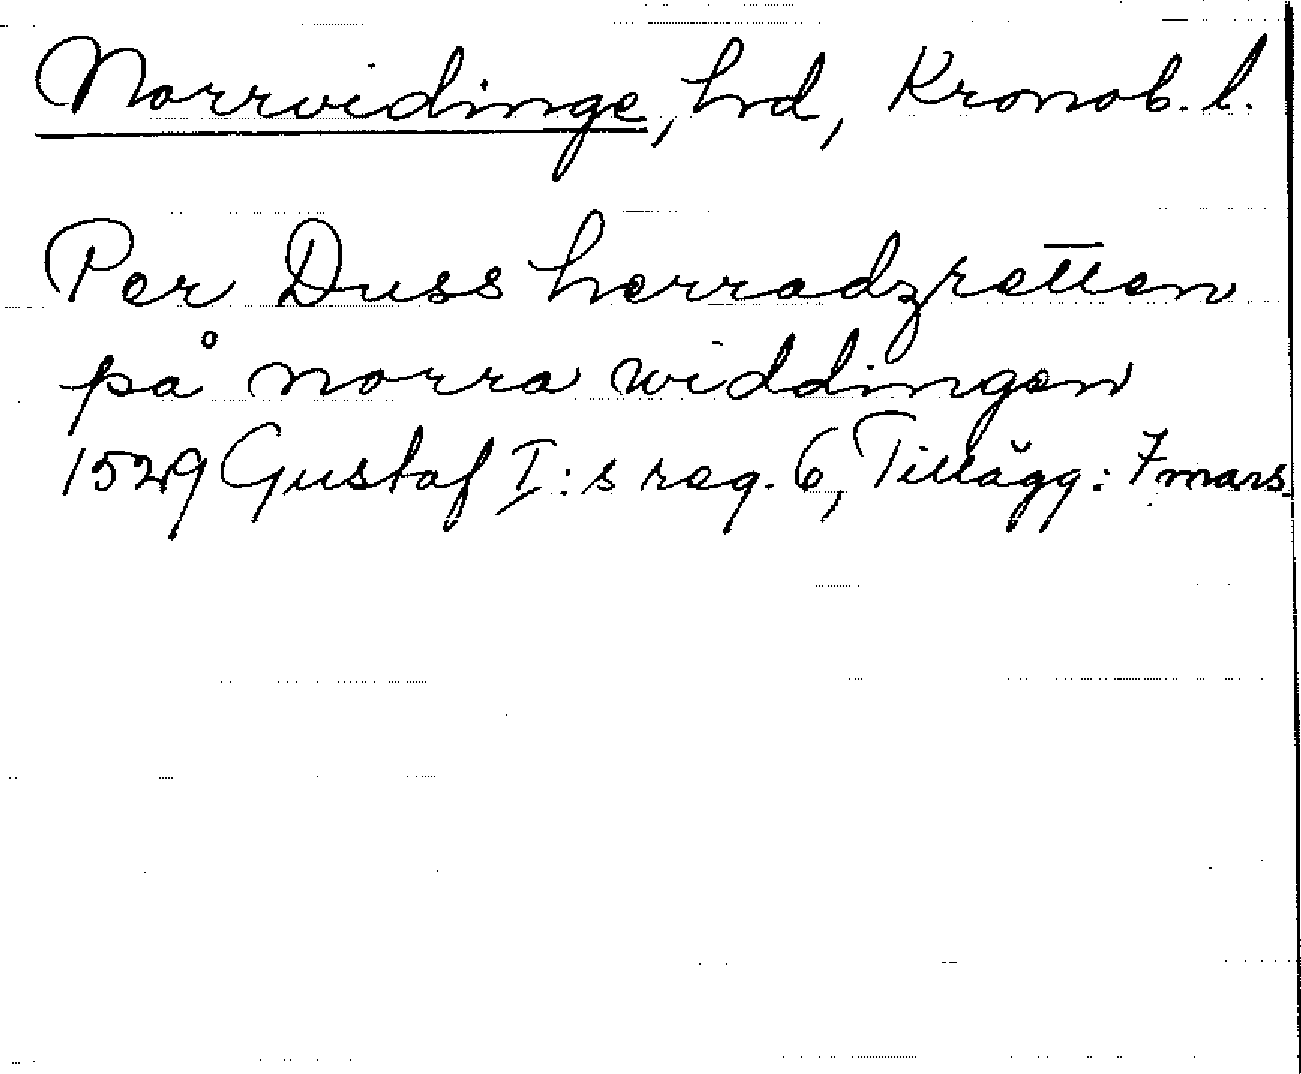 Norrvidinge, hrd, Kronob. l.
Per Duss herradzretten
på norra widdingen
1529 Gustaf I:s reg. 6, Tillägg: 7 mars